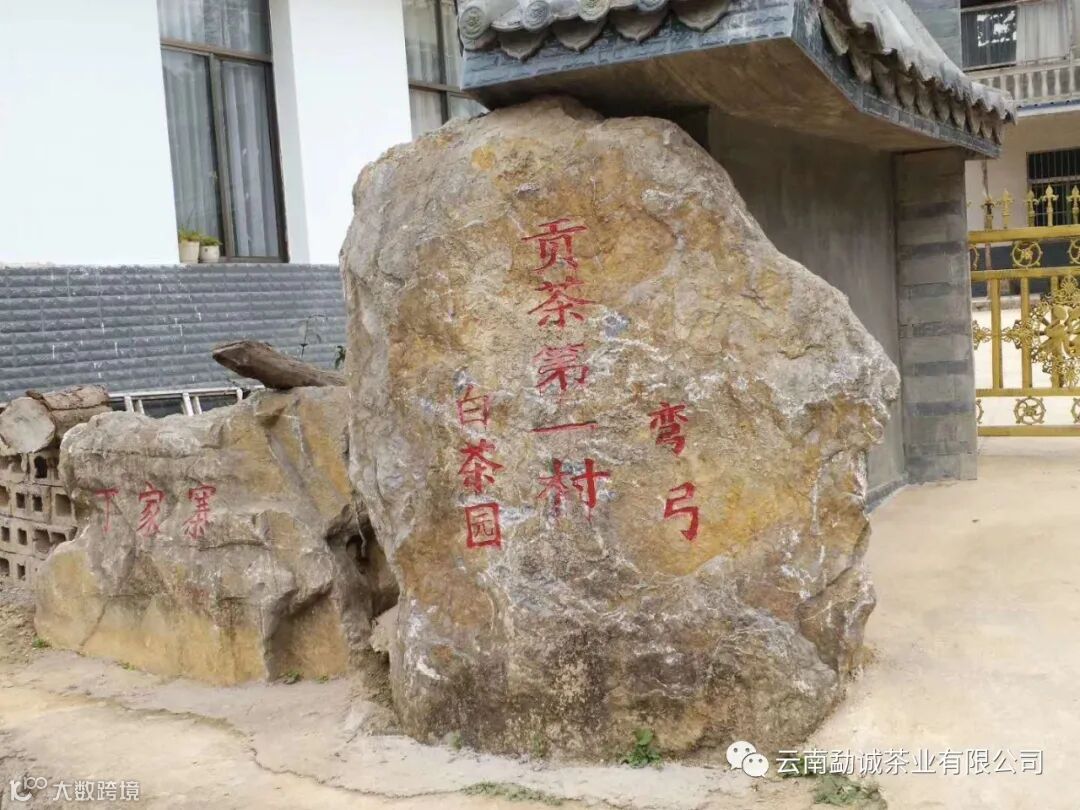 弯弓
贡茶第一村
白茶园
丁家寨
云南勐诚茶业有限公司
大数跨境